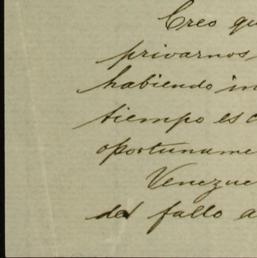 Creo qu
privarnos
habiendo in
tiempo es c
oportuname
Venezue
del fallo a